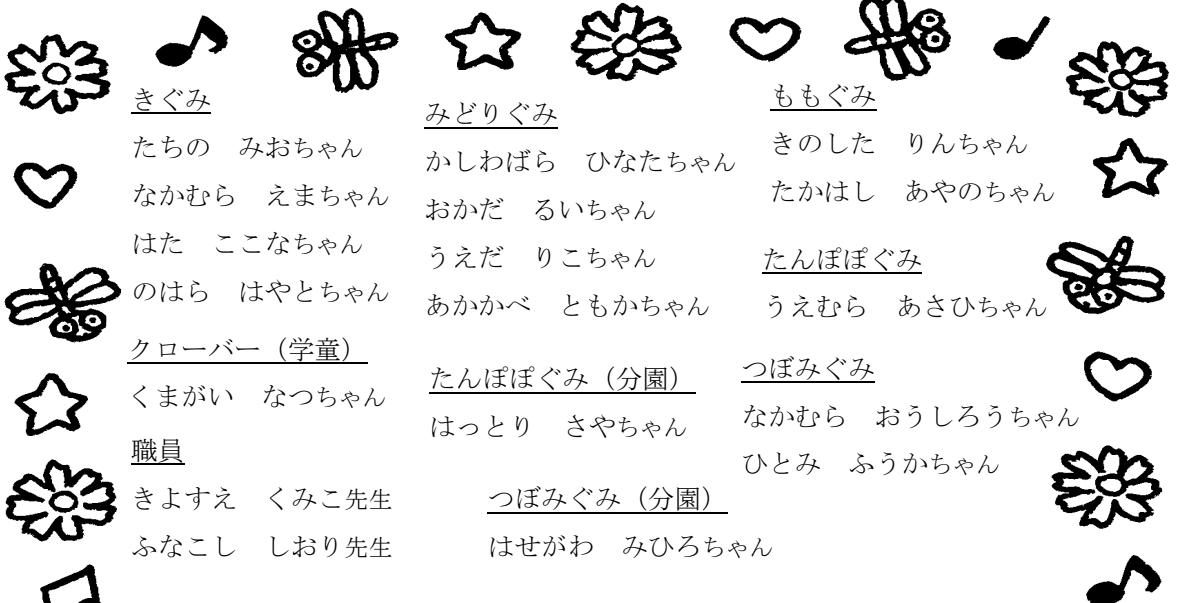 きぐみ
たちの　みおちゃん
なかむら　えまちゃん
はた　ここなちゃん
のはら　はやとちゃん
クローバー（学童）
くまがい　なつちゃん
職員
きよすえ　くみこ先生
ふなこし　しおり先生
みどりぐみ
かしわばら　ひなたちゃん
おかだ　るいちゃん
うえだ　りこちゃん
あかかべ　ともかちゃん
たんぽぽぐみ（分園）
はっとり　さやちゃん
つぼみぐみ（分園）
はせがわ　みひろちゃん
ももぐみ
きのした　りんちゃん
たかはし　あやのちゃん
たんぽぽぐみ
うえむら　あさひちゃん
つぼみぐみ
なかむら　おうしろうちゃん
ひとみ　ふうかちゃん